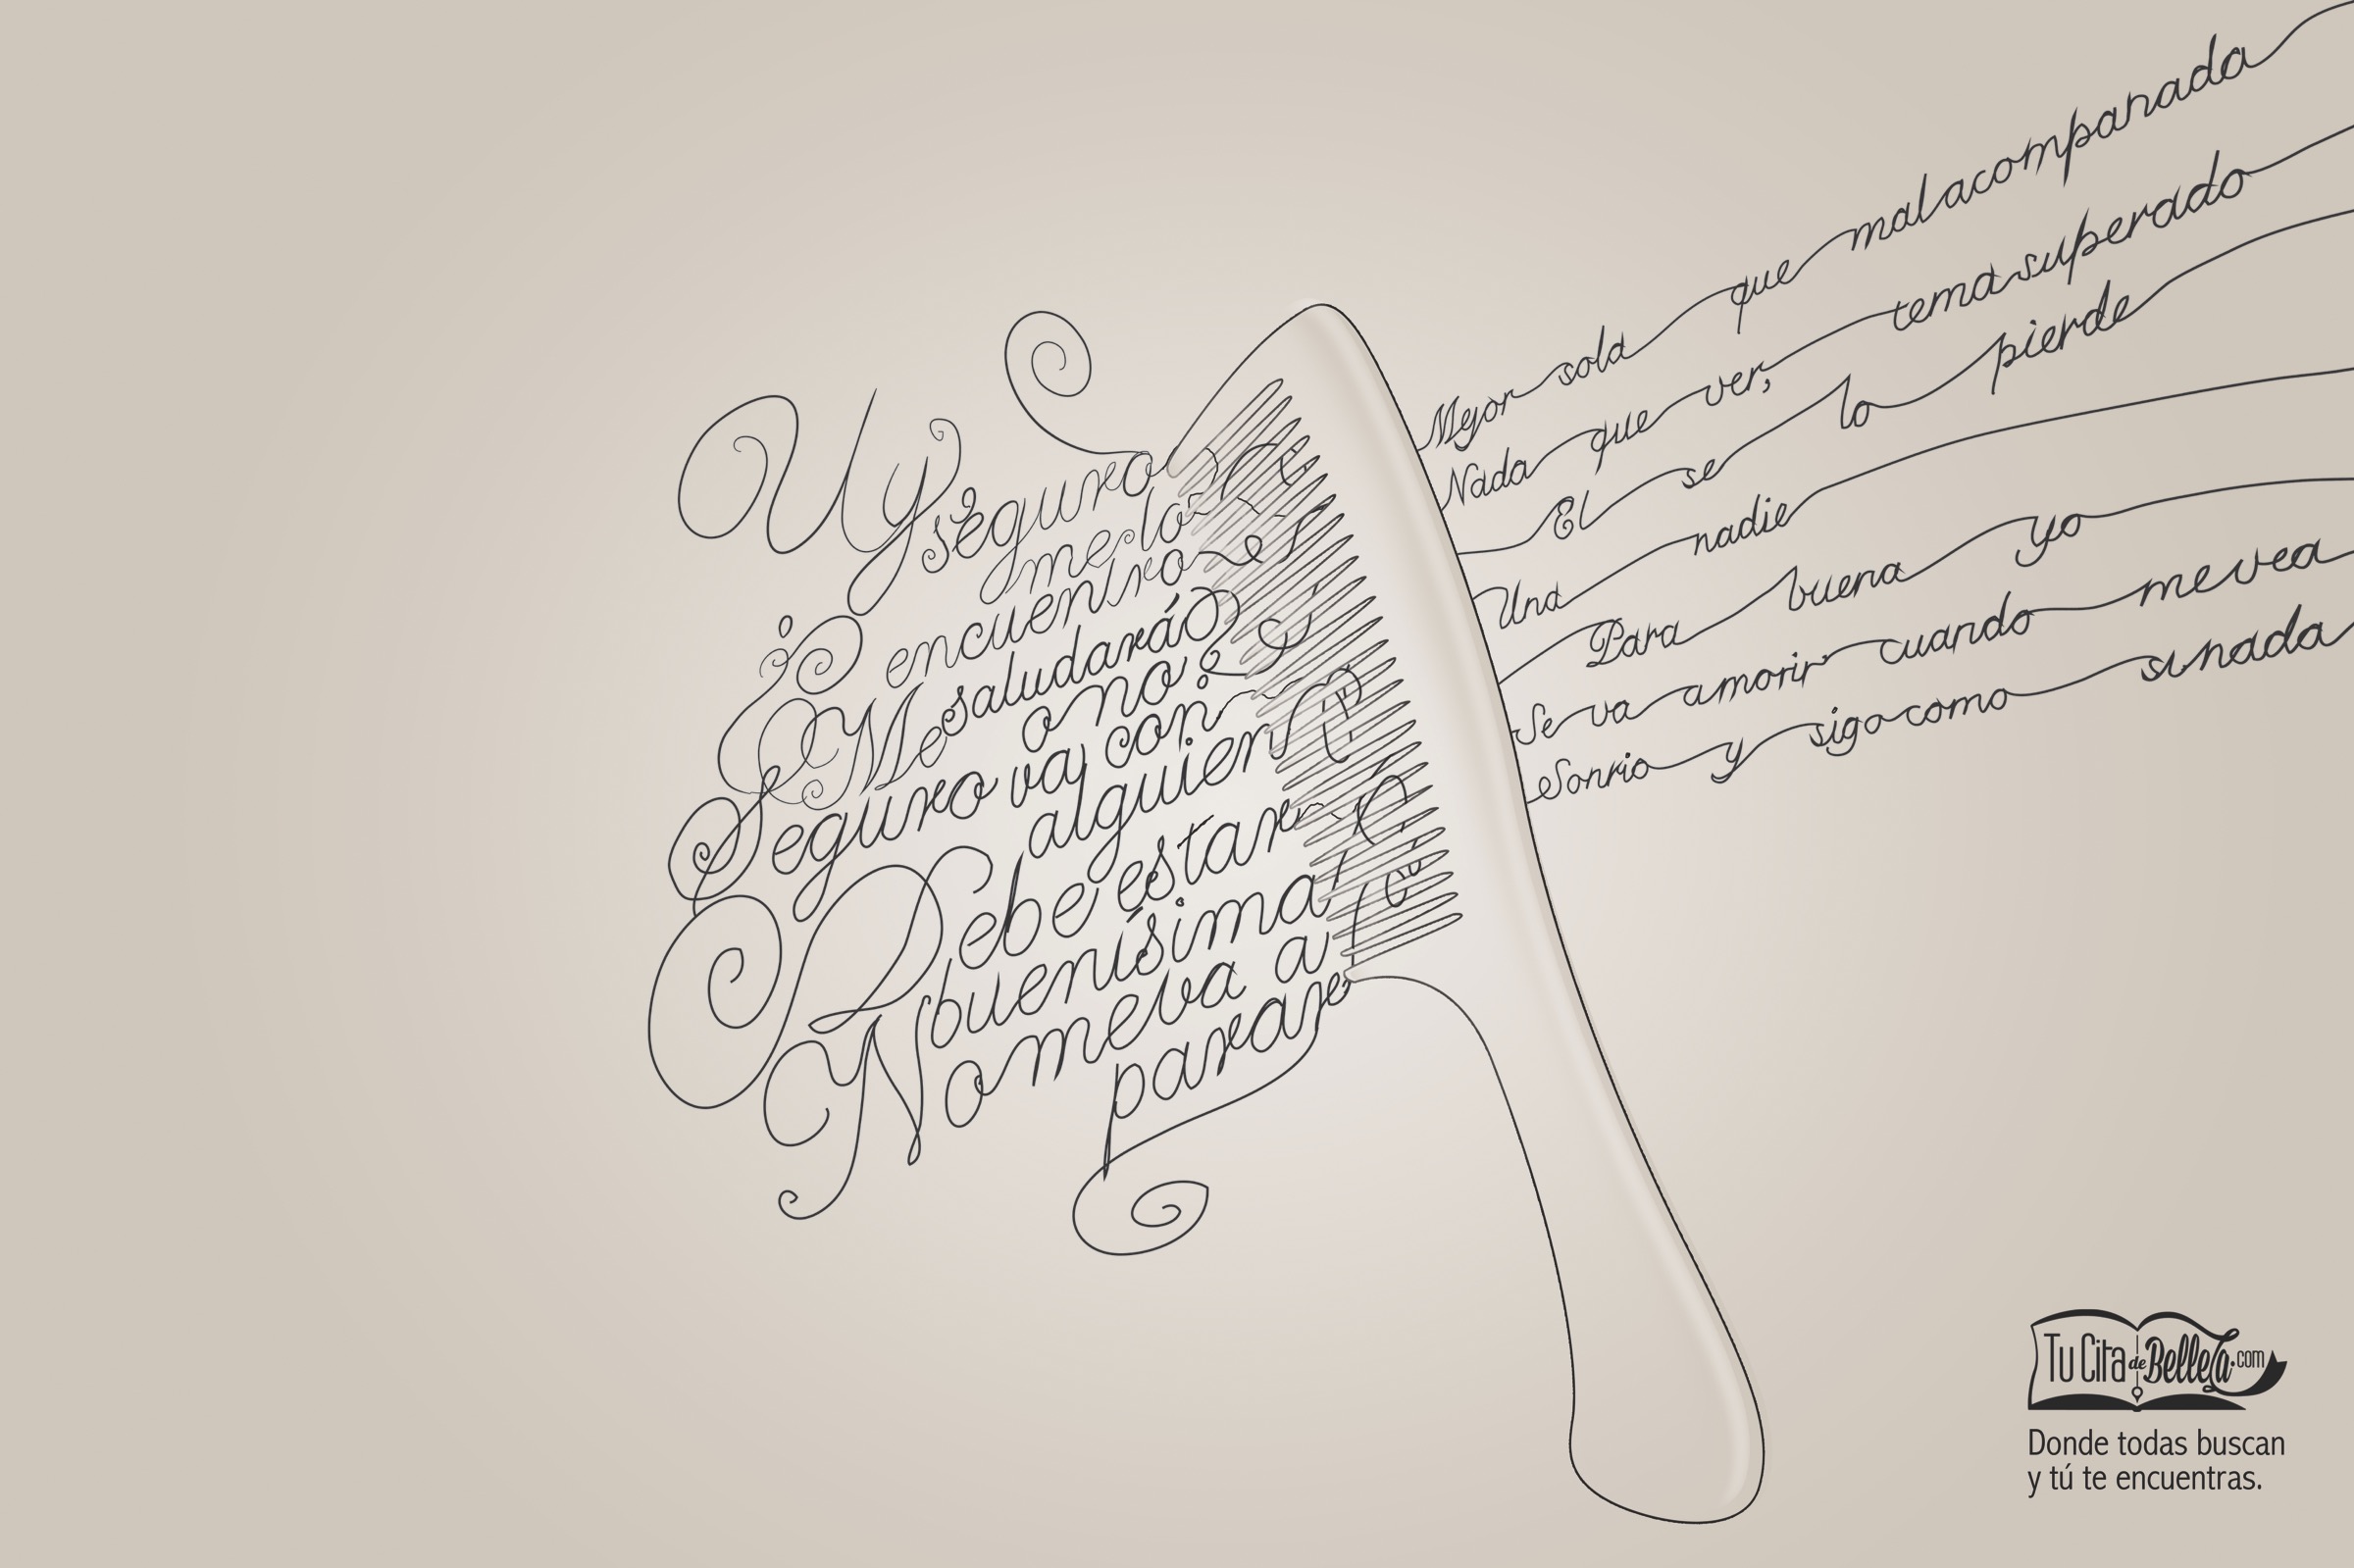 Uy
seguro
me lo
encuentro
¿Me saludará
o no?
Seguro va con
alguien
Debe estar
buenísima
No me va a
parar
Mejor sola que mal acompanada
Nada que ver, tema superado
El se lo pierde
Una nadie
Para buena yo
Se va a morir cuando me vea
Sonrio y sigo como si nada
Tu Cita de Belleza.com
Donde todas buscan
y tú te encuentras.